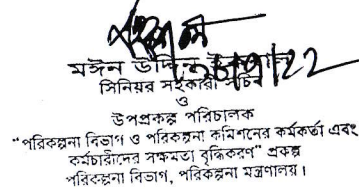 মঈন উদ্দিন
সিনিয়র সহকারী সচিব
ও
উপপ্রকল্প পরিচালক
“পরিকল্পনা বিভাগ ও পরিকল্পনা কমিশনের কর্মকর্তা এবং
কর্মচারীদের সক্ষমতা বৃদ্ধিকরণ” প্রকল্প
পরিকল্পনা বিভাগ, পরিকল্পনা মন্ত্রণালয়।